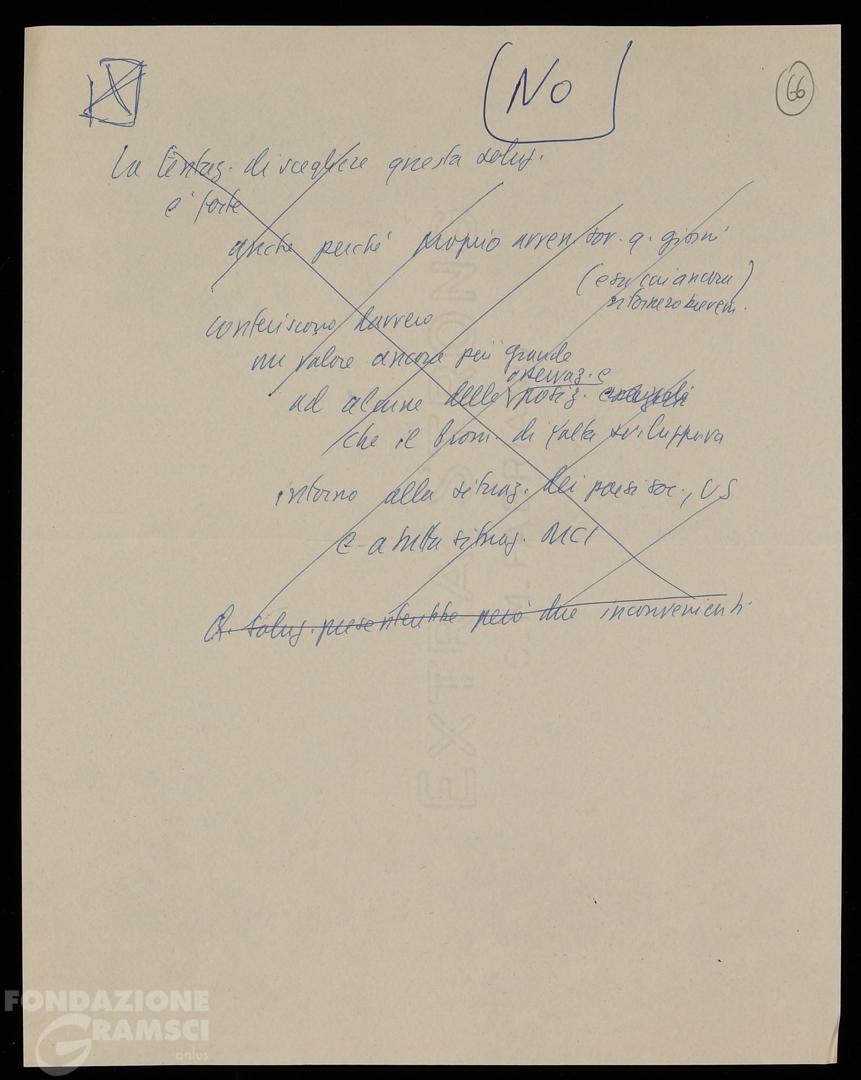 No
66
La tentaz. di scegliere questa soluz.
e' forte
anche perché proprio avven. q. giorni
(e su cui ancora
ritornerò brevem.)
conferiscono davvero
un valore ancora più grande
osservaz. e
ad alcune delle posiz.
che il Prom. di Yalta sviluppava
intorno alla situaz. dei paesi soc., US
e a tutta situaz. MCI
Q. soluz. presenterebbe però due inconvenienti.
EXTRA STRONG
FONDAZIONE
GRAMSCI
onlus